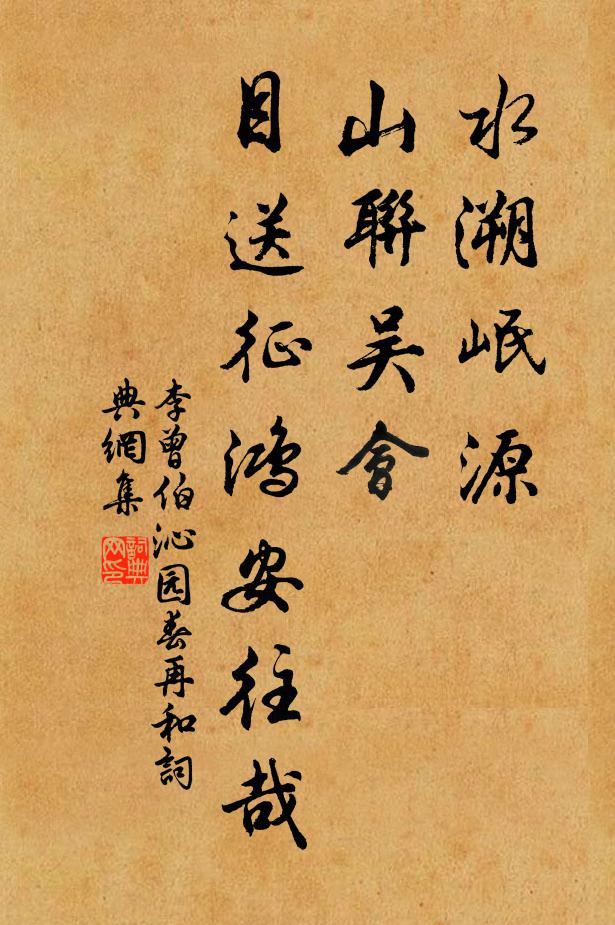 水溯岷源
山聯吴會
目送征鴻安往哉
李曾伯沁园春再和詞
典網集
詞典
网印